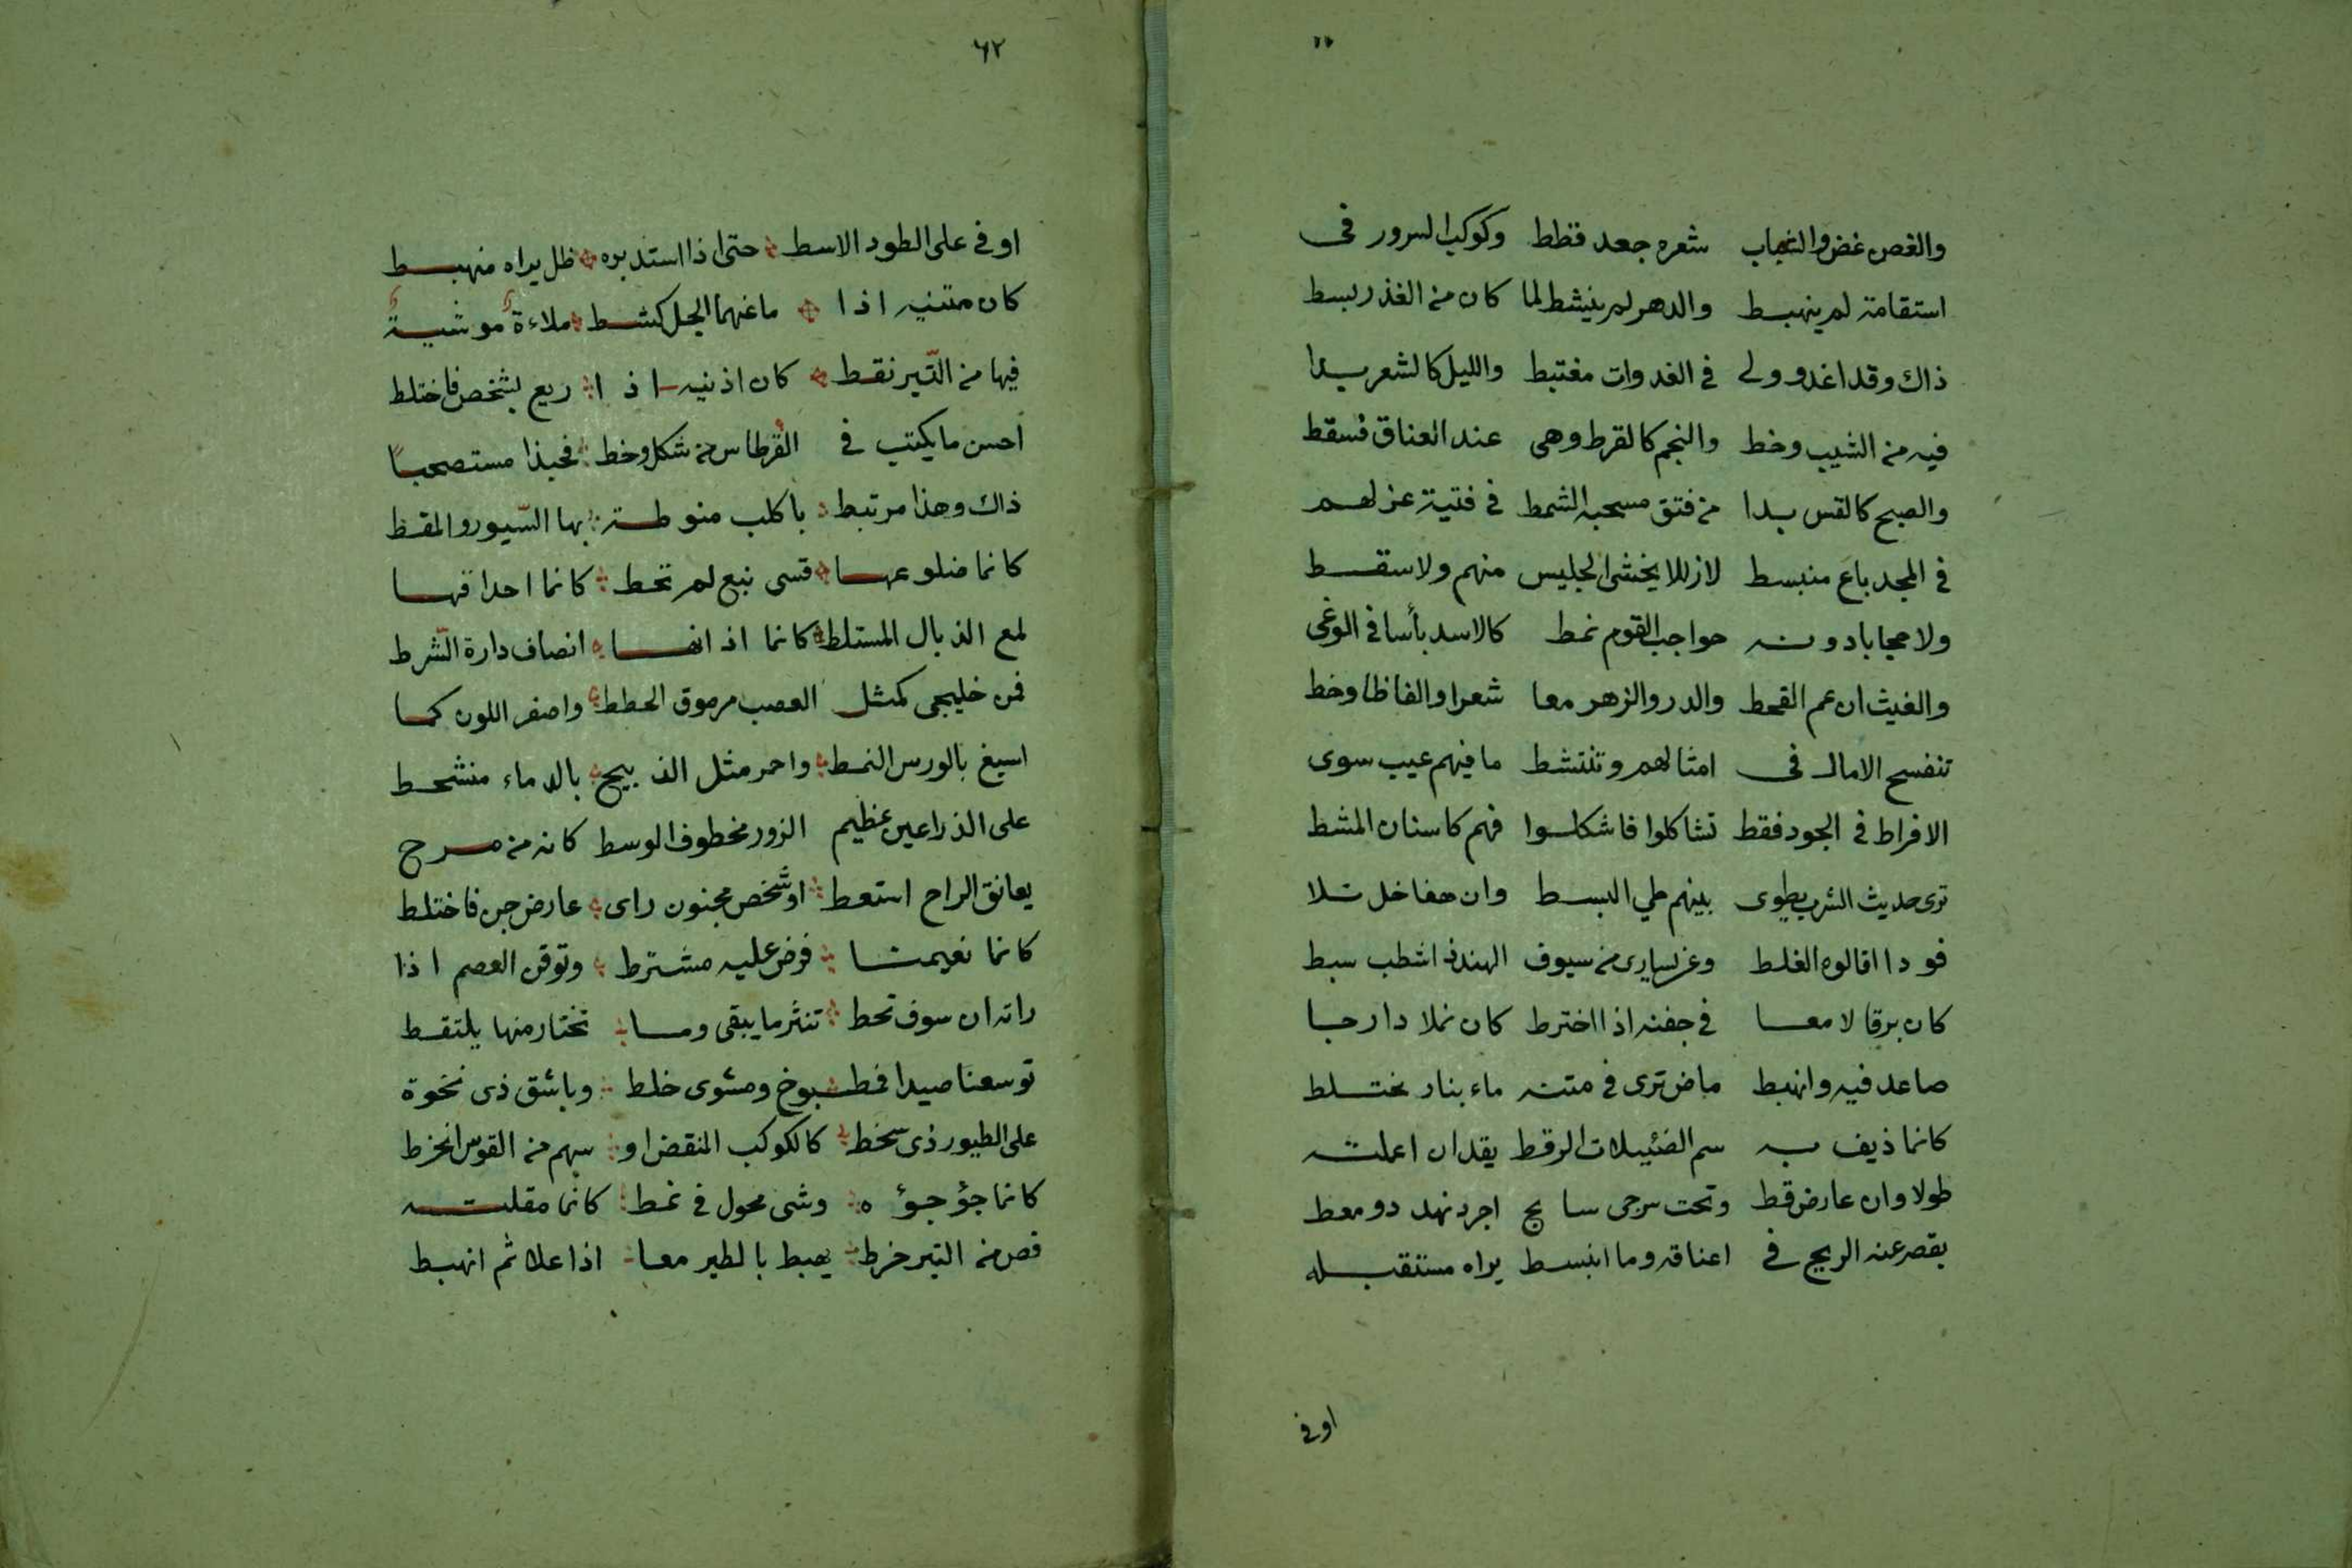 والغصن غض والشباب شعره جعد قطط وكوكب السرور فى
استقامة لم ينهبط والدهر لم ينشط لما كان من الغدر بسط
ذاك وقد اغدو ولى فى الغدوات مغتبط والليل كالشعر بدا
فيه من الشيب وخط والنجم كالقرط وهى عند العناق فسقط
والصبح كالقس بدا من فتق مسحيه الشمط فى فتية عز لهم
فى المجد باع منبسط لازللا يخشى الجليس منهم ولا سقط
ولا حجابا دونه حواجب القوم نمط كالاسد بأسا فى الوغى
والغيث ان عم القحط والدر والزهر معا شعرا والفاظا وخط
تنفسح الامال فى امثالهم وتنتشط ما فيهم عيب سوى
الافراط فى الجود فقط تشاكلوا فاشكلوا فهم كاسنان المشط
ترى حديث الشرب يطوى بينهم طي البسط وان هفا خل تلا
فودا اقالوه الغلط وعن يسارى من سيوف الهند اشطب سبط
كان برقا لامعا فى جفنه اذا اخترط كان نملا دارجا
صاعد فيه وانهبط ماض ترى فى متنه ماء بنار مختلط
كانما ذيف به سم الضئيلات الرقط يقد ان اعملته
طولا وان عارض قط وتحت سرجى سابح اجرد نهد دو معط
يقصر عنه الريح فى اعناقه وما انبسط يراه مستقبله
اوفى
٦٢
اوفى على الطود الاسط حتى اذا استدبره ظل يراه منهبط
كان متنيه اذا ما عنهما الجل كشط ملاءة موشية
فيها من التبر نقط كان اذنيه اذا ريع بشخص فاختلط
احسن ما يكتب فى القرطاس من شكل وخط فحبذا مستصحبا
ذاك وهذا مرتبط باكلب منوطة بها السيور والمقط
كانما ضلوعها قسى نبع لم تحط كانما احداقها
لمع الذبال المستلط كانما اذانها انصاف دارة الشرط
فمن خليجى كمثل العصب مرموق الحطط واصفر اللون كما
اسبغ بالورس النمط واحمر مثل الذبيح بالدماء منشحط
على الذراعين عظيم الزور مخطوف الوسط كانه من مرح
يعانق الراح استعط او شخص مجنون راى عارض جن فاختلط
كانما نعيمتنا فرض عليه مشترط وتوقن العصم اذا
راته ان سوف تحط تنثر ما يبقى وما تختار منها يلتقط
توسعنا صيدا فمطبوخ ومشوى خلط وباشق ذى نخوة
على الطيور ذى سخط كالكوكب المنقض او سهم من القوس انخرط
كانما جؤجؤه وشى محول فى نمط كانما مقلته
فص من التبر خرط يهبط بالطير معا اذا علا ثم انهبط